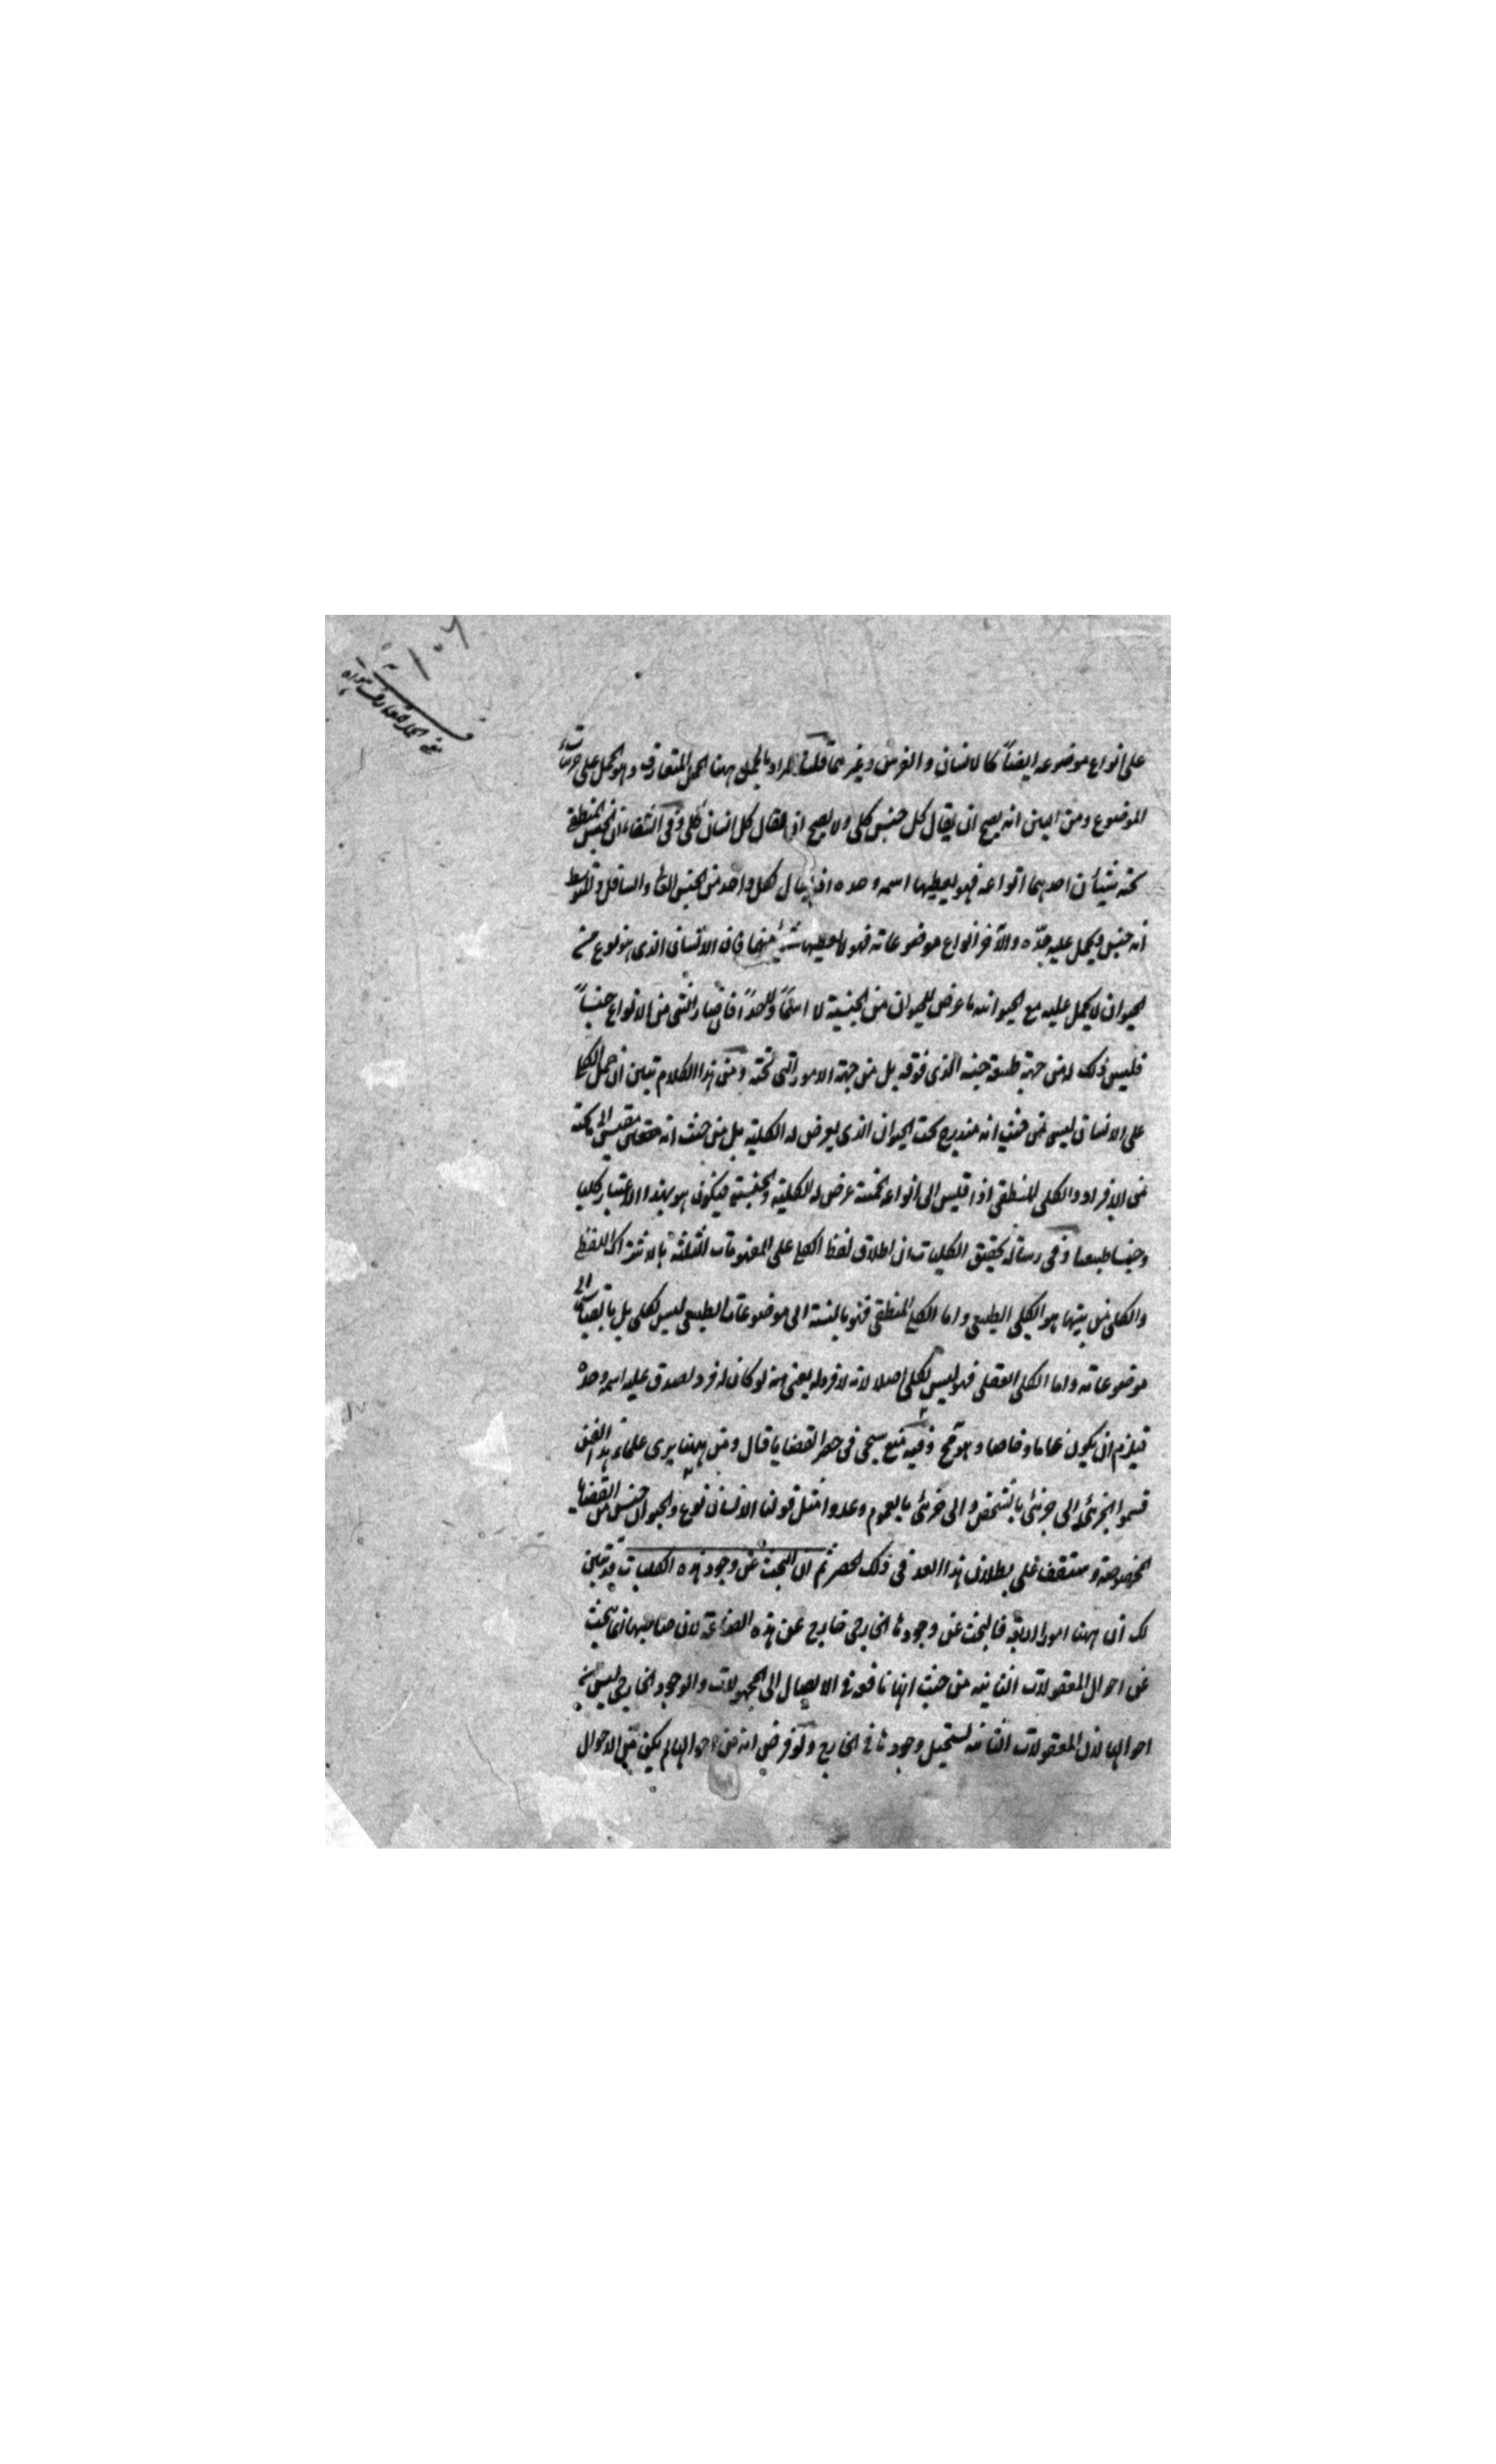 على انواع موضوعه ايضاً كالانسان والفرس وغيرهما قلت المراد بالحمل ههنا الحمل المتعارف وهو الحمل على جزئيات
الموضوع ومن البين انه يصح ان يقال كل جنس كلى ولا يصح ان يقال كل انسان كلى وفى الشفاء ان الجنس المنطقى
تحته شيئان احدهما انواعه فهو يعطيها اسمه وحده اذ يقال لكل واحد من الجنس العالى والسافل والمتوسط
انه جنس ويحمل عليه حدّه والآخر انواع موضوعاته فهو لا يعطيها شئ منهما فان الانسان الذى هو نوع من
الحيوان لا يحمل عليه مع الحيوانيه ما عرض للحيوان من الجنسية لا اسماً ولا حداً فان صار شئ من الانواع جنساً
فليس ذلك له من جهة طبيعة جنسه الذى فوقه بل من جهة الامور التى تحته ومن هذا الكلام تبين ان حمل الكلى
على الانسان ليس من حيث انه مندرج تحت الحيوان الذى يعرض له الكلية بل من حيث انه مقيس الى ما تحته
من الافراد والكلى المنطقى اذا قيس الى انواعه الخمسة عرض له الكلية والجنسية فيكون هو بهذا الاعتبار كليا
وجنسا طبيعيا وفى رسالة تحقيق الكليات ان اطلاق لفظ الكلى على المفهومات الثلثة بالاشتراك اللفظى
والكلى من بينها هو الكلى الطبيعى واما الكلى المنطقى فهو بالنسبة الى موضوعات الطبيعى ليس بكلى بل بالقياس الى
موضوعاته واما الكلى العقلى فهو ليس بكلى اصلا لانه لا فرد له يعنى انه لو كان له فرد لصدق عليه اسمه وحده
فيلزم ان يكون عاما وخاصا وهو مح وفيه منع سيجئ فى حصر القضايا قال ومن ههنا يرى علماء هذا الفن
قسموا الجزئى الى جزئى بالشخص والى جزئى بالعموم وعدوا مثل قولنا الانسان نوع والحيوان جنس من القضايا
المخصوصة وستقف على بطلان هذا العد فى ذلك الحصر ثم ان البحث عن وجود هذه الكليات قد تبين
لك ان ههنا امورا اربعة فالبحث عن وجودها الخارجى خارج عن هذه الصناعة لان صاحبها انما يبحث
عن احوال المعقولات الثانيه من حيث انها نافعة فى الايصال الى المجهولات والوجود الخارجى ليس من
احوالها لان المعقولات الثانيه يستحيل وجودها فى الخارج ولو فرض انه من احوالها لم يكن من الاحوال